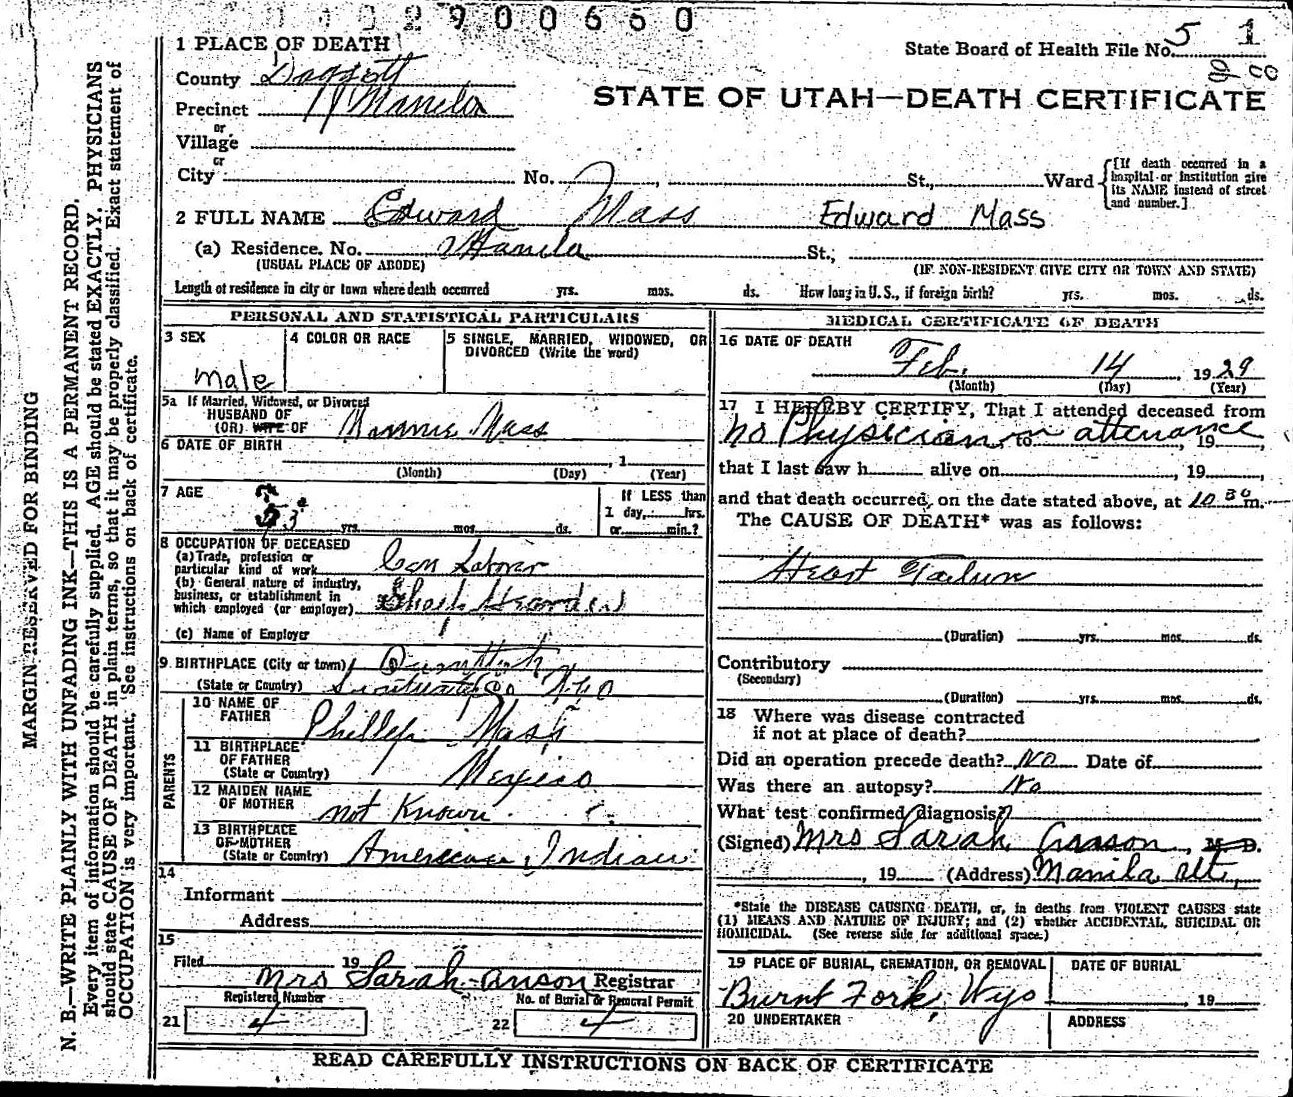 1 0 0 2 9 0 0 6 6 0
1 PLACE OF DEATH
State Board of Health File No. 5 1
County Daggett
Precinct Manila
STATE OF UTAH—DEATH CERTIFICATE
or
Village
or
City No. , St., Ward
[If death occurred in a
hospital or institution give
its NAME instead of street
and number.]
2 FULL NAME Edward Mass Edward Mass
(a) Residence. No. Manila St.,
(USUAL PLACE OF ABODE) (IF NON-RESIDENT GIVE CITY OR TOWN AND STATE)
Length of residence in city or town where death occurred yrs. mos. ds. How long in U. S., if foreign birth? yrs. mos. ds.
PERSONAL AND STATISTICAL PARTICULARS
3 SEX
male
4 COLOR OR RACE
5 SINGLE, MARRIED, WIDOWED, OR
DIVORCED (Write the word)
5a If Married, Widowed, or Divorced
HUSBAND OF
(OR) WIFE OF Mass
6 DATE OF BIRTH
, 1
(Month) (Day) (Year)
7 AGE
53 yrs. mos. ds.
If LESS than
1 day, hrs.
or min.?
8 OCCUPATION OF DECEASED
(a) Trade, profession or
particular kind of work
(b) General nature of industry,
business, or establishment in
which employed (or employer)
(c) Name of Employer
9 BIRTHPLACE (City or town)
(State or Country)
PARENTS
10 NAME OF
FATHER Phillep Mass
11 BIRTHPLACE
OF FATHER
(State or Country) Mexico
12 MAIDEN NAME
OF MOTHER not Known
13 BIRTHPLACE
OF MOTHER
(State or Country) American Indian
14
Informant
Address
15
Filed 19
Mrs Sarah Anson Registrar
Registered Number
21 4
No. of Burial & Removal Permit
22 4
MEDICAL CERTIFICATE OF DEATH
16 DATE OF DEATH
Feb. 14, 1929
(Month) (Day) (Year)
17 I HEREBY CERTIFY, That I attended deceased from
no Physician in attenance to , 19 ,
that I last saw h alive on , 19 ,
and that death occurred, on the date stated above, at 10 30 m.
The CAUSE OF DEATH* was as follows:
Heart Failure
(Duration) yrs. mos. ds.
Contributory
(Secondary)
(Duration) yrs. mos. ds.
18 Where was disease contracted
if not at place of death?
Did an operation precede death? No Date of
Was there an autopsy? No
What test confirmed diagnosis?
(Signed) Mrs Sarah Anson, M. D.
, 19 (Address) Manila Ut.,
*State the DISEASE CAUSING DEATH, or, in deaths from VIOLENT CAUSES state
(1) MEANS AND NATURE OF INJURY; and (2) whether ACCIDENTAL, SUICIDAL OR
HOMICIDAL. (See reverse side for additional space.)
19 PLACE OF BURIAL, CREMATION, OR REMOVAL
Burnt Fork, Wyo
DATE OF BURIAL
, 19
20 UNDERTAKER
ADDRESS
READ CAREFULLY INSTRUCTIONS ON BACK OF CERTIFICATE
MARGIN RESERVED FOR BINDING
N. B.—WRITE PLAINLY WITH UNFADING INK—THIS IS A PERMANENT RECORD.
Every item of information should be carefully supplied. AGE should be stated EXACTLY. PHYSICIANS
should state CAUSE OF DEATH in plain terms, so that it may be properly classified. Exact statement of
OCCUPATION is very important. See instructions on back of certificate.